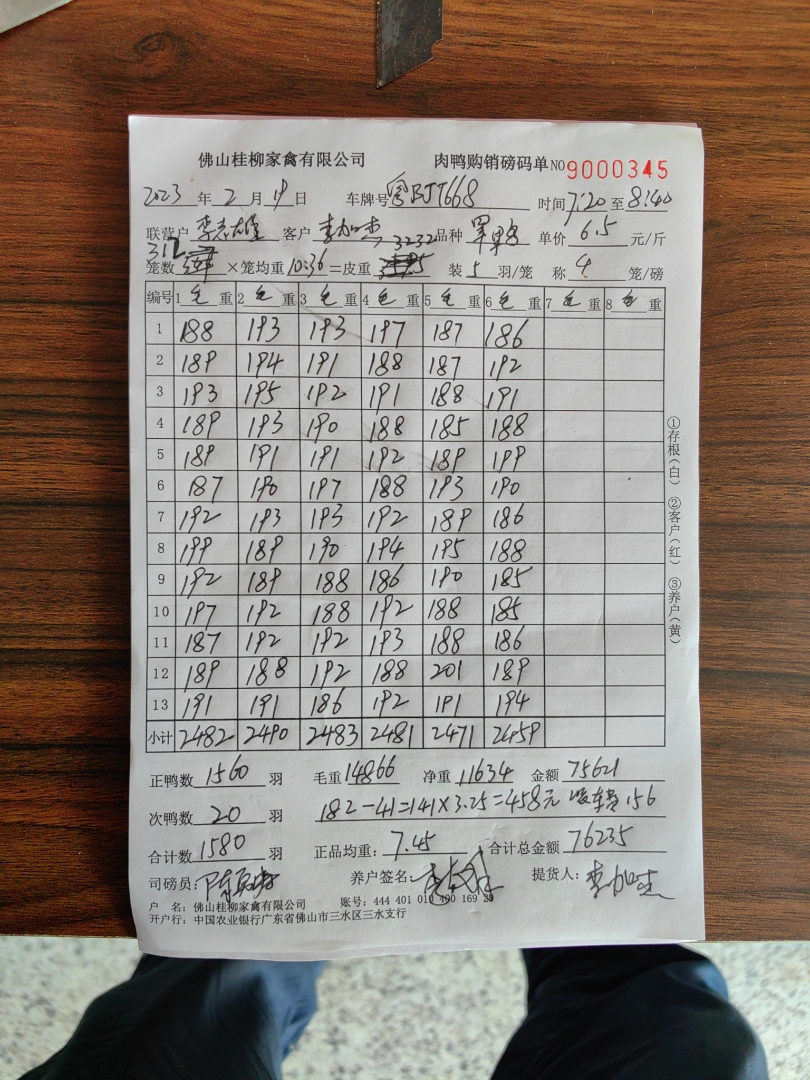 佛山桂柳家禽有限公司 肉鸭购销磅码单 NO 9000345
2023 年 2 月 日 车牌号 粤BJT668 时间 7:20 至 8:40
联营户 李志雄 客户 李加杰 品种 单价 6.5 元/斤
312 3232
笼数 ×笼均重 10.36 =皮重 装 5 羽/笼 称 4 笼/磅
编号 1 毛 重 2 毛 重 3 毛 重 4 毛 重 5 毛 重 6 毛 重 7 毛 重 8 毛 重
1 188 193 193 197 187 186
2 189 194 191 188 187 192
3 193 195 192 191 188 191
4 189 193 190 188 185 188
5 189 191 191 192 189 199
6 187 190 197 188 193 190
7 192 193 193 192 189 186
8 199 189 190 194 195 188
9 192 189 188 186 190 185
10 197 192 188 192 188 185
11 187 192 192 193 188 186
12 189 188 192 188 201 189
13 191 191 186 192 191 194
小计 2482 2490 2483 2481 2471 2459
正鸭数 1560 羽 毛重 14866 净重 11634 金额 75621
次鸭数 20 羽 182-41=141×3.25=458元 156
合计数 1580 羽 正品均重: 7.45 合计总金额 76235
司磅员: 养户签名: 提货人: 李加杰
户 名: 佛山桂柳家禽有限公司 账号: 444 401 010 400 169 20
开户行: 中国农业银行广东省佛山市三水区三水支行
①存根(白) ②客户(红) ③养户(黄)